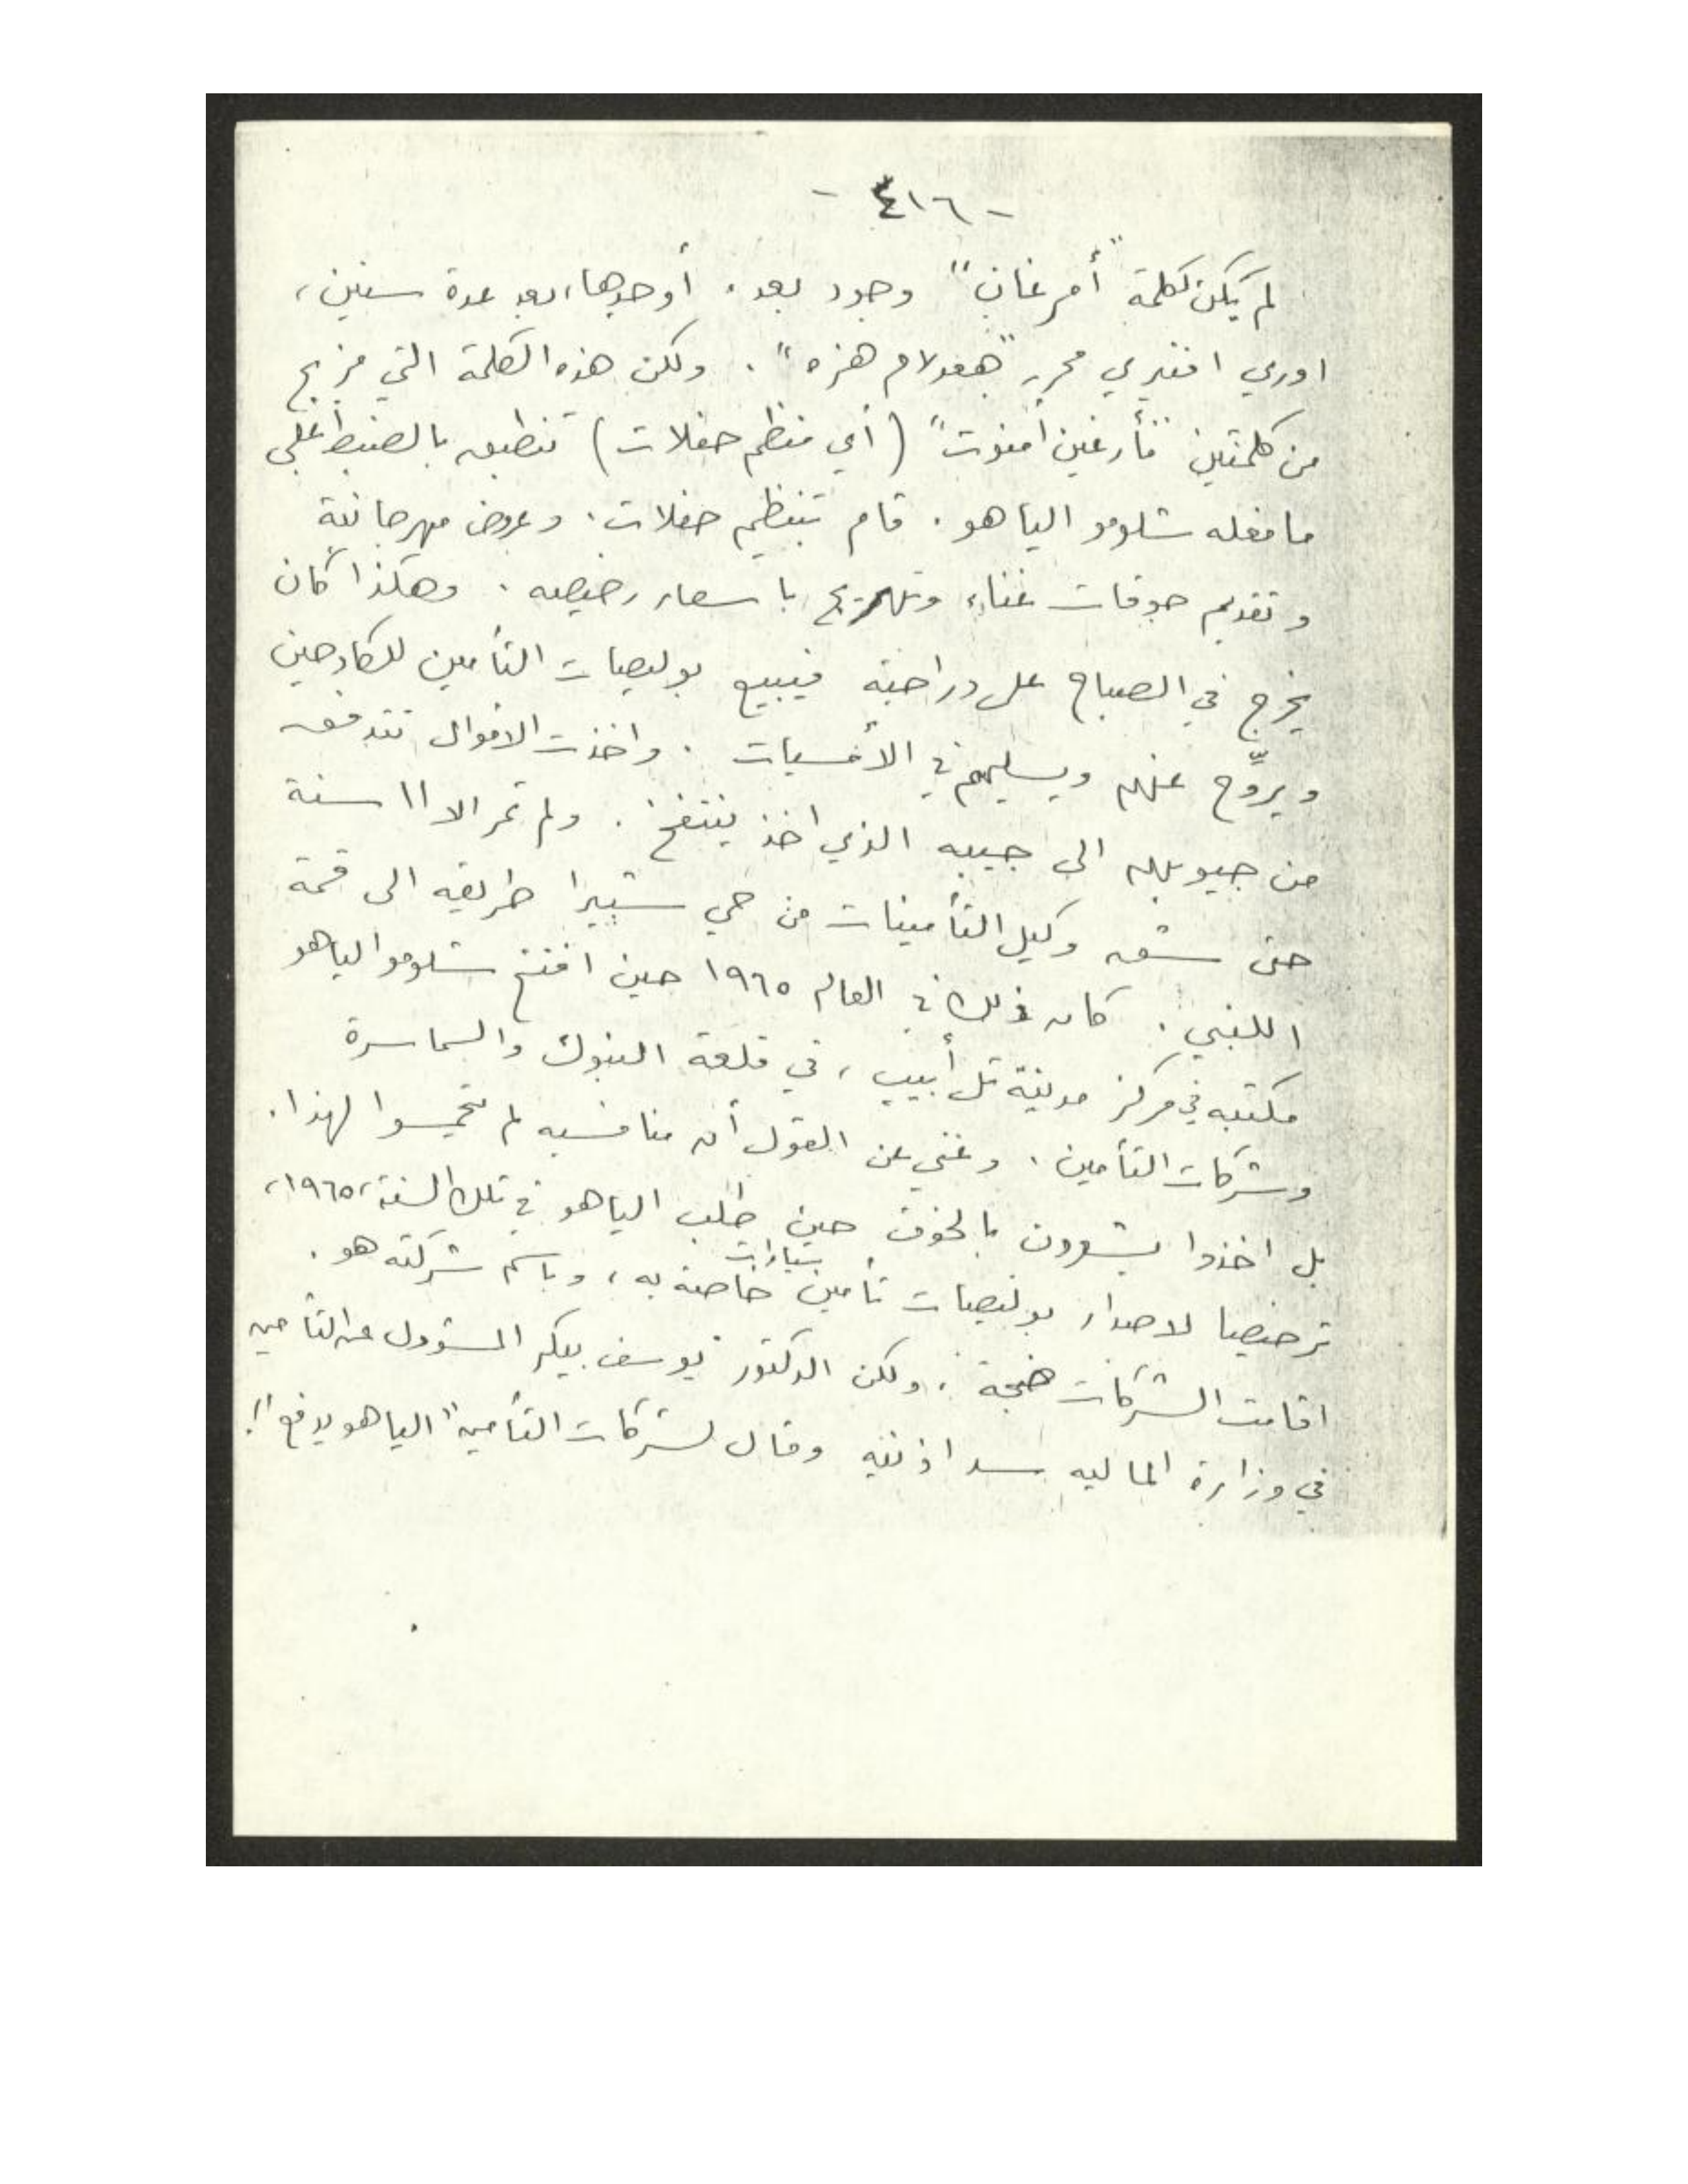 - ٤١٦ -
لم يكن لكلمة "أمرغان" وجود بعد. أوجدها، بعد عدة سنين،
اوري افنيري محرر "هعولام هزه". ولكن هذه الكلمة التي مزيج
من كلمتين "مأرغين أمنوت" (أي منظم حفلات) تنطبق بالضبط على
ما فعله شلومو الياهو. قام بتنظيم حفلات، وعروض مهرجانية
وتقديم جوقات غناء وتهريج باسعار رخيصه. وهكذا كان
يخرج في الصباح على دراجته فيبيع بوليصات التأمين للكادحين
ويروّح عنهم ويسليهم في الأمسيات. واخذت الاموال تتدفق
من جيوبهم الى جيبه الذي اخذ ينتفخ. ولم تمر الا ١١ سنة
حتى شق وكيل التأمينات من حي شبيرا طريقه الى قمة
اللنبي. كان ذلك في العام ١٩٦٥ حين افتتح شلومو الياهو
مكتبه في مركز مدينة تل أبيب، في قلعة البنوك والسماسرة
وشركات التأمين. وغني عن القول أن منافسيه لم يتحمسوا لهذا.
بل اخذوا يشعرون بالخوف حين طلب الياهو في تلك السنة، ١٩٦٥،
ترخيصا لاصدار بوليصات تأمين سيارات خاصة به، وباسم شركته هو.
اقامت الشركات ضجة. ولكن الدكتور يوسف بيكر المسؤول عن التأمين
في وزارة الماليه سد اذنيه وقال لشركات التأمين "الياهو يدفع"!